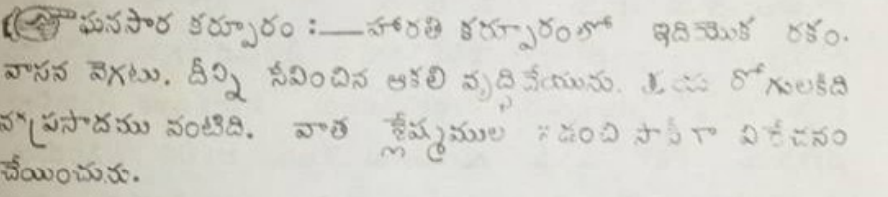 ఘనసార కర్పూరం :— హారతి కర్పూరంలో ఇదియొక రకం.
వాసన వెగటు. దీన్ని సేవించిన ఆకలి వృద్ధిచేయును. క్షయ రోగులకిది
వరప్రసాదము వంటిది. వాత శ్లేష్మముల సాఫీగా విరేచనం
చేయించును.